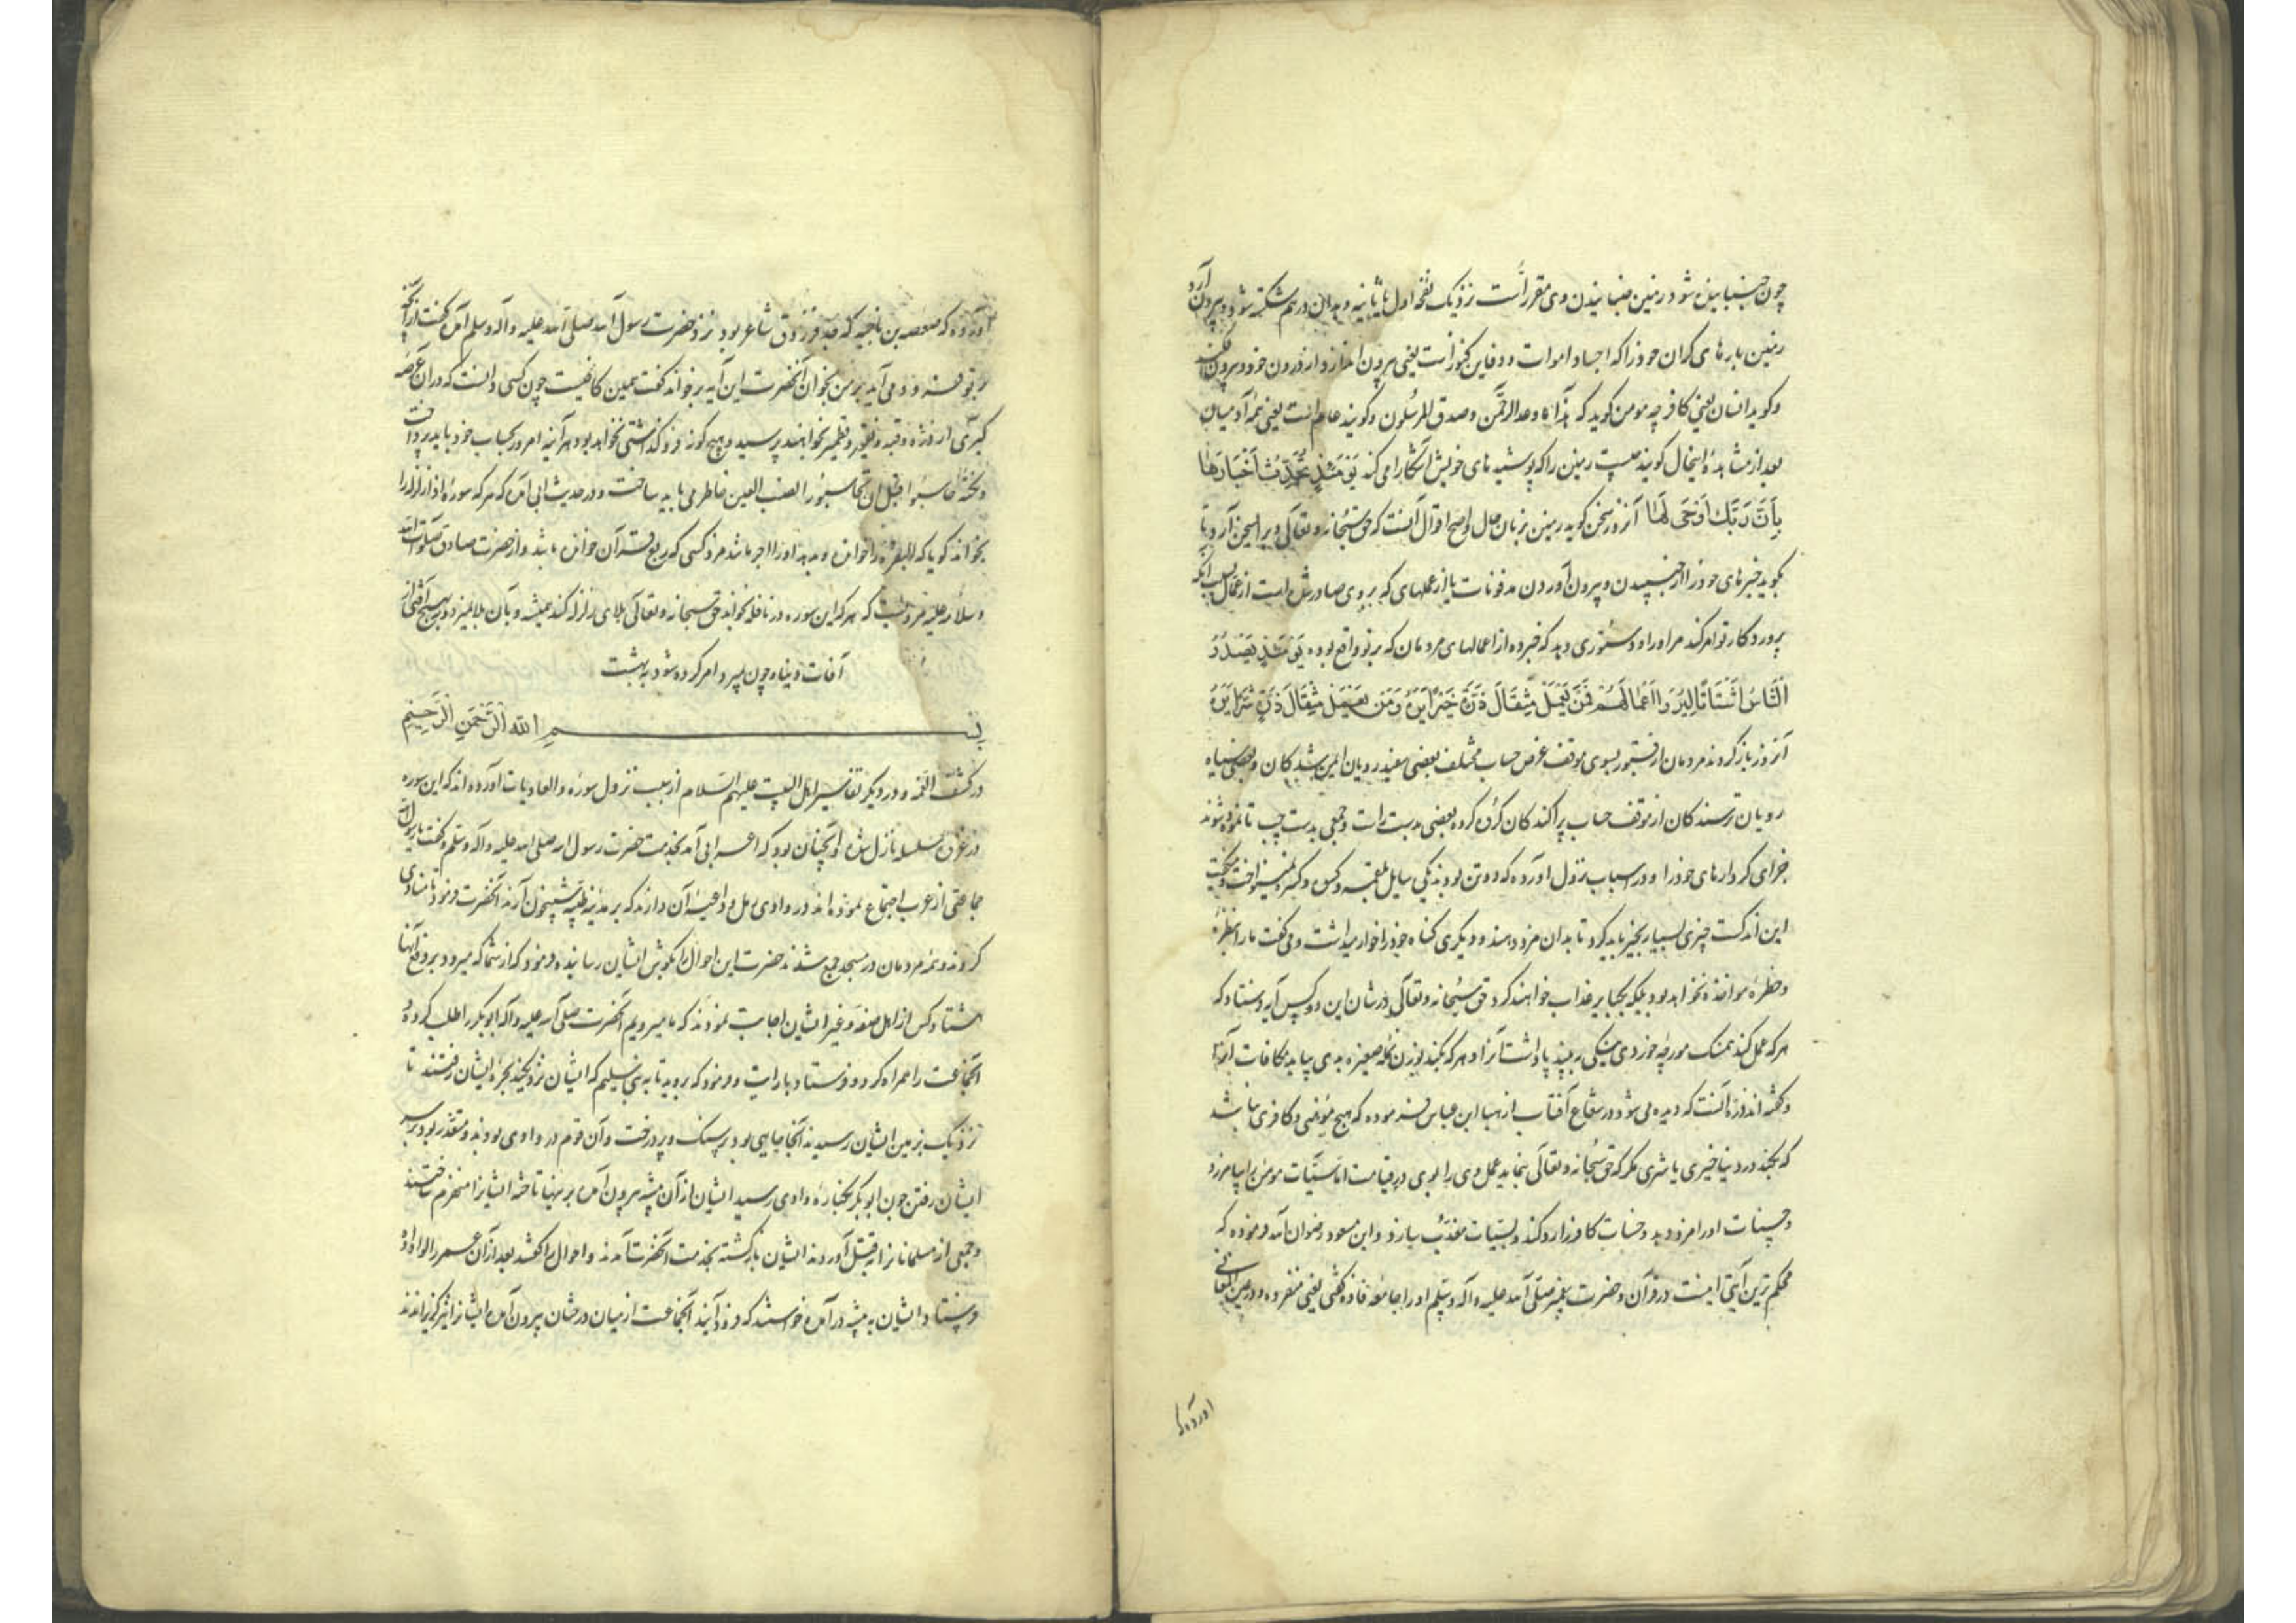 چون جنبانیده شود زمین جنبانیدن وی مقرر است نزدیک نفخه اول یا ثانیه و بدان درهم شکسته شود و بیرون آرد
زمین بارهای گران خود را که اجساد اموات و دفاین کنوز است یعنی بیرون اندازد از درون خود و بیرون فکند
و کوید انسان یعنی کافر چه مومن کوید که هذا ما وعد الرحمن و صدق المرسلون و کویند عام است یعنی همه آدمیان
بعد از مشاهده اینحال کویند چیست زمین را که پوشیده های خویش آشکارا می کند یَوْمَئِذٍ تُحَدِّثُ أَخْبَارَهَا
بِأَنَّ رَبَّكَ أَوْحَى لَهَا آنروز سخن کوید زمین بزبان حال و اصح اقوال آنست که حق سبحانه و تعالی ویرا بسخن آرد تا
بکوید خبرهای خود را از جنبیدن و بیرون آوردن مدفونات یا از عملهای که بر وی صادر شده است از عمال بسبب آنکه
پروردکار تو امر کند مر او را و دستوری دهد که خبر ده از اعمالهای مردمان که بر تو واقع بوده یَوْمَئِذٍ يَصْدُرُ
النَّاسُ أَشْتَاتًا لِيُرَوْا أَعْمَالَهُمْ فَمَنْ يَعْمَلْ مِثْقَالَ ذَرَّةٍ خَيْرًا يَرَهُ وَمَنْ يَعْمَلْ مِثْقَالَ ذَرَّةٍ شَرًّا يَرَهُ
آنروز باز کردند مردمان از قبور بسوی موقف عرض حساب مختلف بعضی سفید رویان ایمن شدکان و بعضی سیاه
رویان ترسندکان از موقف حساب پراکندکان کروه کروه بعضی بدست راست و جمعی بدست چپ تا نموده شوند
جزای کردارهای خود را و در اسباب نزول آورده که دو تن بودند یکی سایل بلقمه و کسره نمینواخت و میکفت
این اندکست چیزی بسیار بخیر باید کرد تا بدان مزد دهند و دیکری کناه خود را خوار میداشت و می کفت ما را بنظره
و خطره مواخذه نخواهد بود بلکه بکبایر عذاب خواهند کرد حق سبحانه و تعالی در شان این دو کس آیه فرستاد که
هر که عمل کند همسنک مورچه خورد می نیکی به بیند پاداشت آنرا و هر که بکند بوزن نمله صغیره بدی بیابد مکافات آنرا
و کفته اند ذره آنست که دیده می شود در شعاع آفتاب از هبا ابن عباس فرموده که هیچ مؤمنی و کافری نباشد
که بکند در دنیا خیری یا شری مکر که حق سبحانه و تعالی بنماید عمل وی را بوی در قیامت اما سیئات مومن را بیامرزد
و حسنات او را مزد دهد و حسنات کافر را رد کند و بسیئات معذب سازد و ابن مسعود رضوان الله فرموده که
محکم ترین آیتی اینست در قرآن و حضرت پیغمبر صلی الله علیه و آله و سلم او را جامعه فاذه کفتی یعنی منفرده و در عین المعانی
آورده که
آورده که صعصعه بن ناجیه که جد فرزدق شاعر بود نزد حضرت رسول الله صلی الله علیه و آله و سلم آمده کفت از آنچه
بر تو فرود می آید بر من بخوان آنحضرت این آیه بر خواند کفت همین کافیست چون کسی دانست که در آن عرصه
کبری از ذره و حبه و نقیر و قطمیر بخواهند پرسید و هیچ کونه فروکذاشتی نخواهد بود هر آینه امروز بحساب خود باید پرداخت
و نکته حاسبوا قبل ان تحاسبوا را نصب العین خاطر می باید ساخت و در حدیث ابی آمده که هر که سوره اذا زلزلت را
بخواند کویا که البقره را خوانده و بدهد او را اجر مانند مزد کسی که ربع قرآن خوانده باشد و از حضرت صادق صلوات الله
و سلامه علیه مرویست که هر که این سوره در نافله بخواند حق سبحانه و تعالی بلای زلزله کند همیشه و بآن بلا نمیرد و به هیچ آفتی از
آفات دنیا و چون بمیرد امر کرده شود به بهشت
بِسْمِ اللهِ الرَّحْمَنِ الرَّحِيمِ
در کشف الغمه و در دیکر تفاسیر اهل البیت علیهم السلام از سبب نزول سوره والعادیات آورده اند که این سوره
در غزوه سلسله نازل شده و آنچنان بود که اعرابی آمد بخدمت حضرت رسول الله صلی الله علیه و آله وسلم و کفت یا رسول الله
جماعتی از عرب اجتماع نموده اند در وادی رمل و داعیه آن دارند که بر مدینه طیبه شبیخون آرند آنحضرت فرمود تا منادی
کردند و همه مردمان در مسجد جمع شدند حضرت این احوال را بکوش ایشان رسانیده فرمود که از شما که میرود بر دفع آنها
هشتاد کس از اهل صفه و غیر ایشان اجابت نمودند که ما میرویم آنحضرت صلی الله علیه و آله ابوبکر را طلب کرده و
آنجماعت را همراه کرد و فرستاد با رایت و فرمود که بروید تا به بنی سلیم که ایشان نزدیکند بحره ایشان رفتند تا
نزدیک بزمین ایشان رسیدند آنجا جایی بود پر سنک و پر درخت و آن قوم در وادی بودند و متعذر بود بر سر
ایشان رفتن چون ابوبکر بکناره وادی رسید ایشان از آن بیشه بیرون آمده بر اینها تاخته ایشانرا منهزم ساختند
و جمعی از مسلمانانرا بقتل آوردند ایشان بازکشته بخدمت آنحضرت آمدند و احوال را کفتند بعد از آن عمر را لوا داد و
فرستاد ایشان به بیشه در آمده خواستند که فرود آیند آنجماعت از میان درختان بیرون آمده ایشانرا نیز کریزاندند